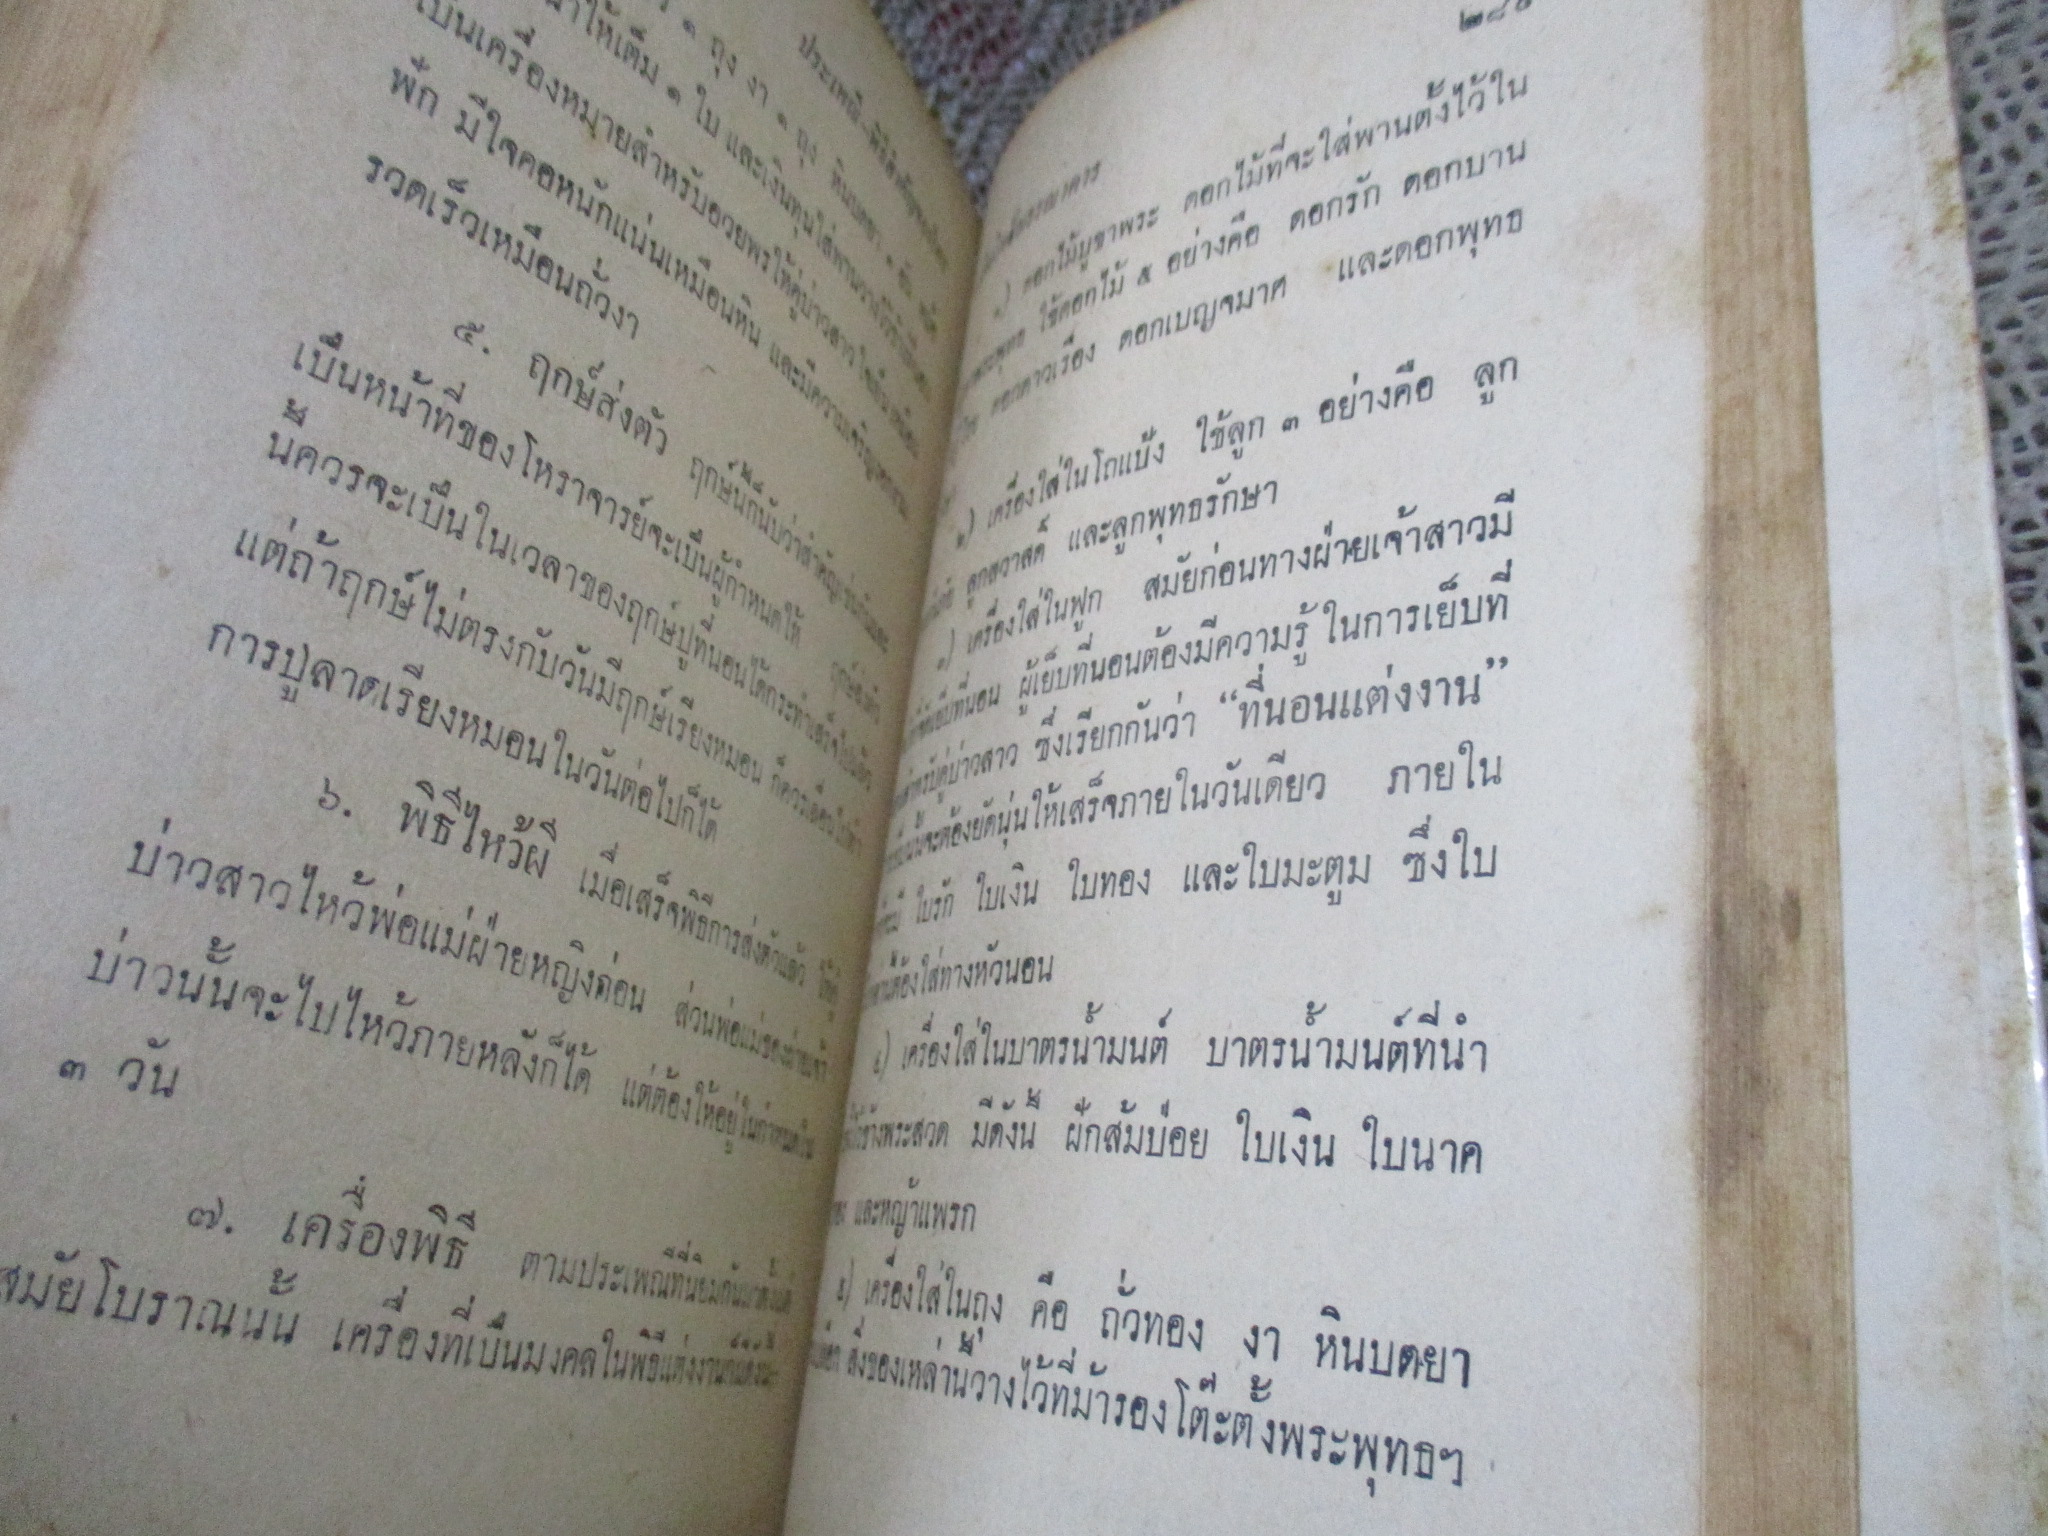 ให้เต็ม ๑ ใบ และเงินทุนใส่พานวางไว้
เป็นเครื่องหมายสำหรับอวยพรให้คู่บ่าวสาว
พัก มีใจคอหนักแน่นเหมือนหิน และมีความเจริญ
รวดเร็วเหมือนถั่วงา
๕. ฤกษ์ส่งตัว ฤกษ์นี้ก็นับว่าสำคัญ
เป็นหน้าที่ของโหราจารย์จะเป็นผู้กำหนดให้ ฤกษ์ส่งตัว
นี้ควรจะเป็นในเวลาของฤกษ์ปูที่นอนได้กระทำเสร็จไปแล้ว
แต่ถ้าฤกษ์ไม่ตรงกับวันมีฤกษ์เรียงหมอน ก็ควรเลื่อนไปทำ
การปูลาดเรียงหมอนในวันต่อไปก็ได้
๖. พิธีไหว้ผี เมื่อเสร็จพิธีการส่งตัวแล้ว ให้คู่
บ่าวสาวไหว้พ่อแม่ฝ่ายหญิงก่อน ส่วนพ่อแม่ของฝ่ายเจ้า
บ่าวนั้นจะไปไหว้ภายหลังก็ได้ แต่ต้องให้อยู่ในกำหนดภายใน
๓ วัน
๗. เครื่องพิธี ตามประเพณีที่นิยมกันมาตั้งแต่
สมัยโบราณนั้น เครื่องที่เป็นมงคลในพิธีแต่งงาน
๑) ดอกไม้บูชาพระ ดอกไม้ที่จะใส่พานตั้งไว้ใน
ใช้ดอกไม้ ๕ อย่างคือ ดอกรัก ดอกบาน
ดอกดาวเรือง ดอกเบญจมาศ และดอกพุทธ
๒) เครื่องใส่ในโถแป้ง ใช้ลูก ๓ อย่างคือ ลูก
ลูกสวาสดิ์ และลูกพุทธรักษา
๓) เครื่องใส่ในฟูก สมัยก่อนทางฝ่ายเจ้าสาวมี
ผู้เย็บที่นอนต้องมีความรู้ ในการเย็บที่
สำหรับคู่บ่าวสาว ซึ่งเรียกกันว่า “ที่นอนแต่งงาน”
นั้นจะต้องยัดนุ่นให้เสร็จภายในวันเดียว ภายใน
ใบรัก ใบเงิน ใบทอง และใบมะตูม ซึ่งใบ
ต้องใส่ทางหัวนอน
๔) เครื่องใส่ในบาตรน้ำมนต์ บาตรน้ำมนต์ที่นำ
ข้างพระสวด มีดังนี้ ฝักส้มป่อย ใบเงิน ใบนาค
และหญ้าแพรก
๕) เครื่องใส่ในถุง คือ ถั่วทอง งา หินบดยา
สิ่งของเหล่านี้วางไว้ที่ม้ารองโต๊ะตั้งพระพุทธฯ